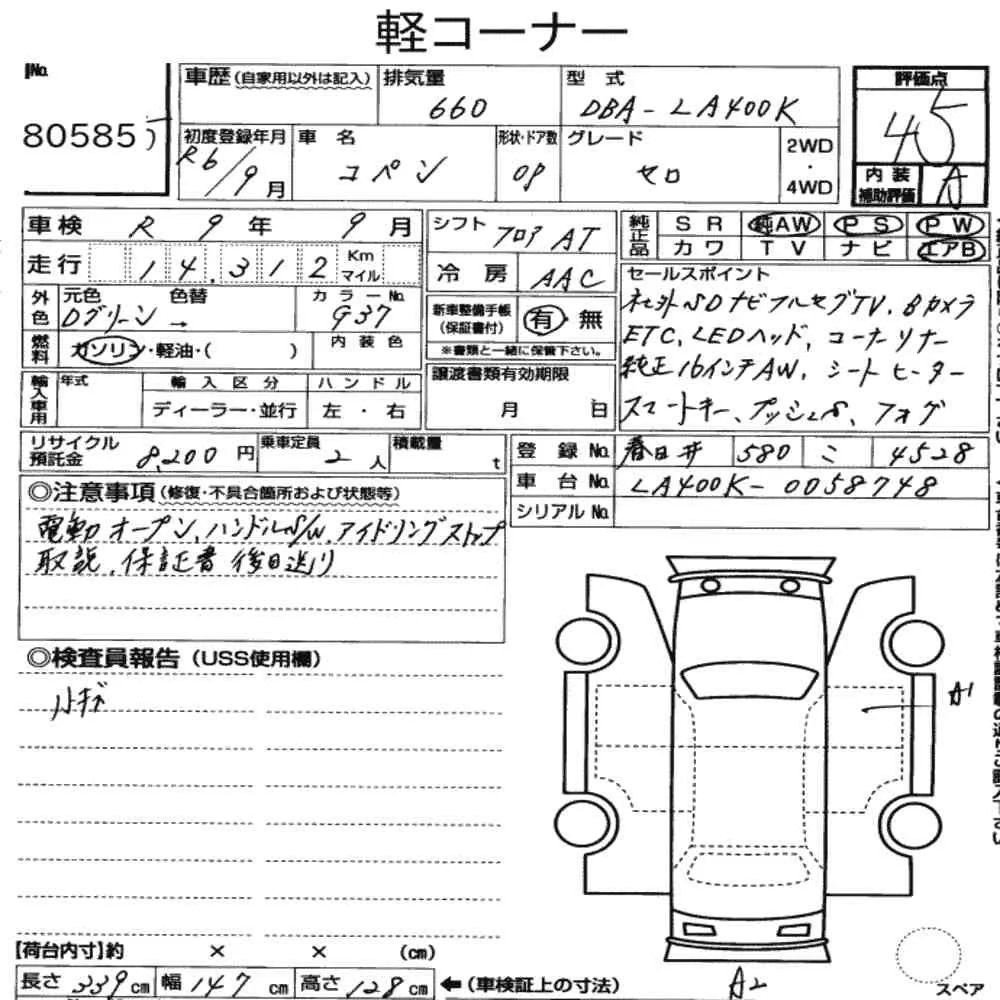 軽コーナー
No.
80585
車歴(自家用以外は記入)
排気量
660
型式
DBA-LA400K
評価点
4.5
初度登録年月
R6/9月
車名
コペン
形状・ドア数
OP
グレード
セロ
2WD
・
4WD
内装
補助評価
A
車検 R 9年 9月
走行 14,312 Km マイル
外色
元色 色替
Dグリーン →
カラーNo.
G37
燃料
ガソリン・軽油・( )
内装色
輸入車用
年式
輸入区分
ディーラー・並行
ハンドル
左・右
シフト フロア AT
冷房 AAC
新車整備手帳
(保証書付)
有・無
※書類と一緒に保管下さい。
譲渡書類有効期限
月 日
純正品
SR 純AW PS PW
カワ TV ナビ エアB
セールスポイント
社外SDナビフルセグTV、Bカメラ
ETC、LEDヘッド、コーナーリナー
純正16インチAW、シートヒーター
スマートキー、プッシュS、フォグ
リサイクル預託金 8,200円
乗車定員 2人
積載量 t
登録No. 春日井 580 こ 4528
車台No. LA400K-0058748
シリアルNo.
◎注意事項(修復・不具合箇所および状態等)
電動オープン、ハンドルS/W、アイドリングストップ
取説、保証書 後日送り
◎検査員報告(USS使用欄)
小キズ
A1
【荷台内寸】約 × × (cm)
長さ 339cm 幅 147cm 高さ 128cm
←(車検証上の寸法)
A2
スペア